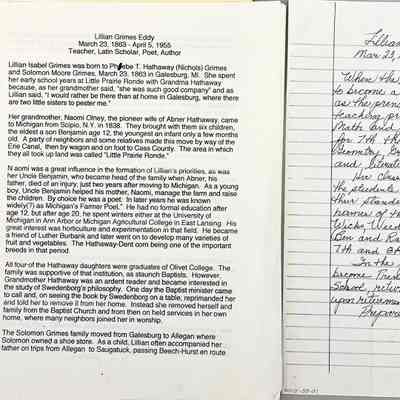 Lillian Grimes Eddy
March 23, 1863 - April 5, 1955
Teacher, Latin Scholar, Poet, Author
Lillian Isabel Grimes was born to Phebe T. Hathaway (Nichols) Grimes
and Solomon Moore Grimes, March 23, 1863 in Galesburg, MI. She spent
her early school years at Little Prairie Ronde with Grandma Hathaway
because, as her grandmother said, "she was such good company" and as
Lillian said, "I would rather be there than at home in Galesburg, where there
are two little sisters to pester me."
Her grandmother, Naomi Olney, the pioneer wife of Abner Hathaway, came
to Michigan from Scipio, N.Y. in 1838. They brought with them six children,
the eldest a son Benjamin age 12, the youngest an infant only a few months
old. A party of neighbors and some relatives made this move by way of the
Erie Canal, then by wagon and on foot to Cass County. The area in which
they all took up land was called "Little Prairie Ronde".
Naomi was a great influence in the formation of Lillian's priorities, as was
her Uncle Benjamin, who became head of the family when Abner, his
father, died of an injury, just two years after moving to Michigan. As a young
boy, Uncle Benjamin helped his mother, Naomi, manage the farm and raise
the children. By choice he was a poet. In later years he was known
widely(?) as Michigan's Farmer Poet." He had no formal education after
age 12, but after age 20, he spent winters either at the University of
Michigan in Ann Arbor or Michigan Agricultural College in East Lansing. His
great interest was horticulture and experimentation in that field. He became
a friend of Luther Burbank and later went on to develop many varieties of
fruit and vegetables. The Hathaway-Dent corn being one of the important
breeds in that period.
All four of the Hathaway daughters were graduates of Olivet College. The
family was supportive of that institution, as staunch Baptists. However,
Grandmother Hathaway was an ardent reader and became interested in
the study of Swedenborg's philosophy. One day the Baptist minister came
to call and, on seeing the book by Swedenborg on a table, reprimanded her
and told her to remove it from her home. Instead she removed herself and
family from the Baptist Church and from then on held services in her own
home, where many neighbors joined her in worship.
The Solomon Grimes family moved from Galesburg to Allegan where
Solomon owned a shoe store. As a child, Lillian often accompanied her
father on trips from Allegan to Saugatuck, passing Beech-Hurst en route
Lillian
Mar 23,
When the
to become a
as the prin
teaching pr
Math and
for 7th th
Geometry, B
and literat
Her class
the students
their standa
names of th
Wicks, Ward
Ben and Ra
7th and 8th
In the
become Presi
School, retur
upon retirem
Prepare